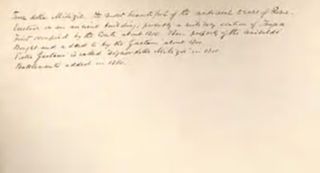 Torre delle Milizie. The most beautiful of the mediaeval towers of Rome.
Erected on an ancient building, probably a military station of Trajan
First occupied by the Conti about 1210. Then property of the Annibaldi
Bought and added to by the Gaetani about 1300.
Pietro Gaetani is called "Signor delle Milizie" in 1301.
Battlements added in